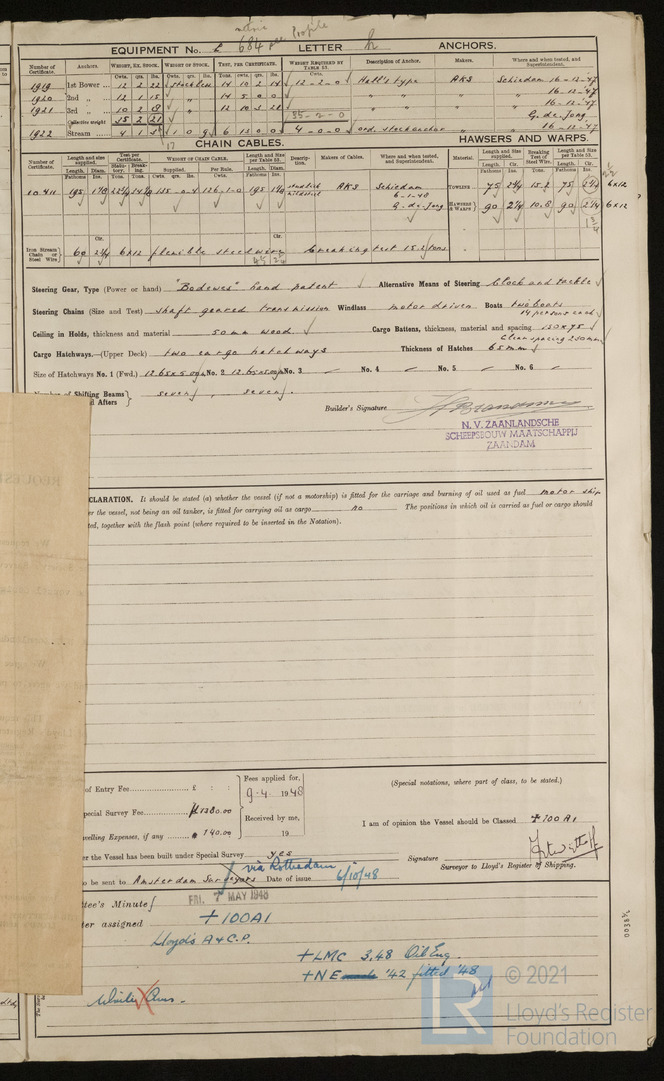 EQUIPMENT No. £ 684 LETTER h ANCHORS.
Number of Certificate. Anchors. WEIGHT, EX. STOCK. WEIGHT OF STOCK. TEST, PER CERTIFICATE. WEIGHT REQUIRED BY TABLE 53. Description of Anchor. Makers. Where and when tested, and Superintendent.
Cwts. qrs. lbs. Cwts. qrs. lbs. Tons. cwts. qrs. lbs. Cwts.
1919 1st Bower 12 2 22 stockless 14 10 2 14 12-2-0 Hall's type AKS Schiedam 16-12-47
1920 2nd „ 12 1 15 „ 14 5 0 0 „ „ „ 16-12-47
1921 3rd „ 10 2 „ 12 10 3 21 „ „ „ 16-12-47
Collective weight 35 2 21 35-2-0 G. de Jong.
1922 Stream 4 1 1 0 9 6 15 0 0 4-0-0 ord. stock anchor „ „ 16-12-47
CHAIN CABLES. HAWSERS AND WARPS.
Number of Certificate. Length and size supplied. Test per Certificate. WEIGHT OF CHAIN CABLE. Length and Size per Table 53. Description. Makers of Cables. Where and when tested, and Superintendent. Material. Length and Size supplied. Breaking Test of Steel Wire. Length and Size per Table 53.
Length. Diam. Statutory. Breaking. Supplied. Per Rule. Length. Diam. Length. Cir. Length. Cir.
Fathoms Ins. Tons. Tons. Cwts. qrs. lbs. Cwts. Fathoms Ins. Fathoms Ins. Tons. Fathoms Ins.
10411 195 126-1-0 195 AKS Schiedam 6-1-48 TOWLINES 75 2¾ 15.2 75 2¾ 6x12
G. de Jong HAWSERS & WARPS 90 2¼ 10.8 90 2¼ 6x12
1¾
Cir. Cir.
Iron Stream Chain or Steel Wire 60 2¾ 6x12 flexible steel wire breaking test 15.2 tons
Steering Gear, Type (Power or hand) "Bodewes" hand patent Alternative Means of Steering block and tackle
Steering Chains (Size and Test) shaft geared transmission Windlass motor driven Boats two boats
14 persons each
Ceiling in Holds, thickness and material 50mm wood Cargo Battens, thickness, material and spacing 150x75
Clear spacing 230mm
Cargo Hatchways.—(Upper Deck) two cargo hatchways Thickness of Hatches 65mm
Size of Hatchways No. 1 (Fwd.) 12.65x5.00m No. 2 12.65x5.00m No. 3 No. 4 No. 5 No. 6
Shifting Beams seven, seven.
Afters
Builder's Signature
N. V. ZAANLANDSCHE
SCHEEPSBOUW MAATSCHAPPIJ
ZAANDAM
CLARATION. It should be stated (a) whether the vessel (if not a motorship) is fitted for the carriage and burning of oil used as fuel motor ship
er the vessel, not being an oil tanker, is fitted for carrying oil as cargo no The positions in which oil is carried as fuel or cargo should
ted, together with the flash point (where required to be inserted in the Notation).
of Entry Fee £ : : Fees applied for, (Special notations, where part of class, to be stated.)
9.4 1948
pecial Survey Fee 1380.00 Received by me, I am of opinion the Vessel should be Classed +100A1
velling Expenses, if any 140.00 19
er the Vessel has been built under Special Survey yes
Signature
Surveyor to Lloyd's Register of Shipping.
via Rotterdam
o be sent to Amsterdam Surveyors Date of issue 6/10/48
ttee's Minute FRI. 7 MAY 1948
ter assigned +100A1
Lloyd's A & C.P.
+LMC 3.48 Oil Eng.
+NE made '42 fitted '48
0038½
© 2021
LR
Lloyd's Register
Foundation